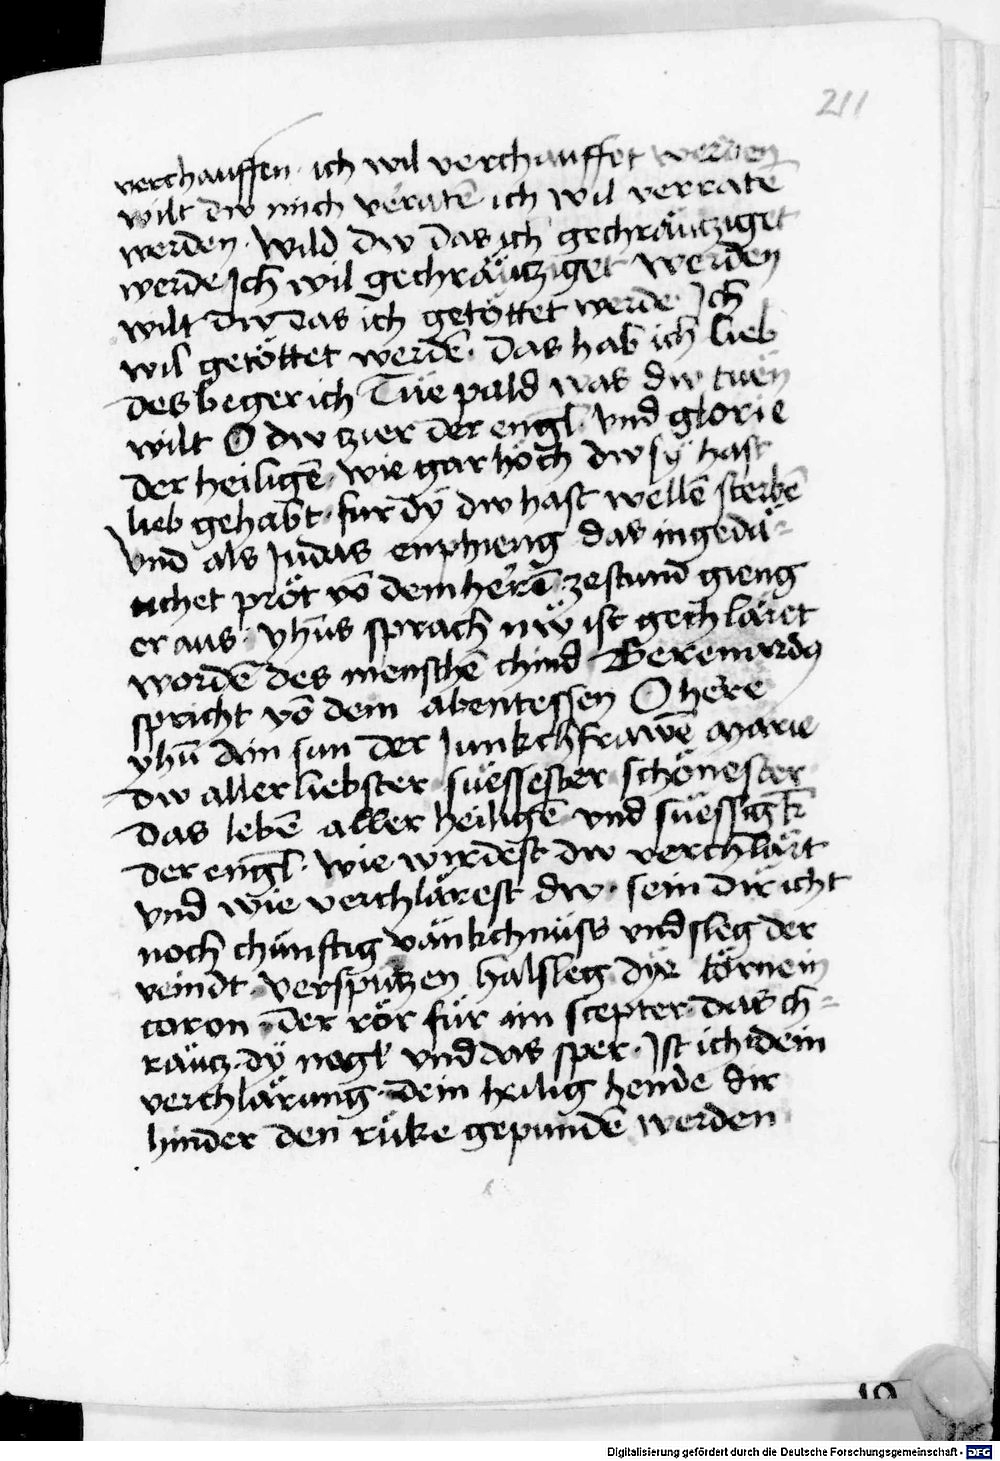 211
verchauffen · ich wil verchauffet werden
wilt dw mich veratē ich wil verratē
werden · Wild dw das ich gechräutziget
werde Ich wil gechräutziget werden
wilt dw das ich getöttet werde · Ich
wil getöttet werdē · das hab ich lieb
des beger ich Tüe pald was dw tuen
wilt O dw tzier der engl · Vnd glorie
der heiligē · wie gar höch dw sÿ hast
lieb gehabt · fur dÿ dw hast wellē sterbē
Vnd als Judas enphieng das ingedü-
nchet pröt vō dem herē zestund gieng
er aus · yhūs sprach nẅ ist gechläret
wordē des menschē chind Berenardus
spricht vō dem abentessen O here
yhū ain sun der Junkchfrawē Marie
dw aller liebster suessester schönester
das lebē aller heiligē vnd suessigk̄
der engl · Wie wirdest dw verchlärt
Vnd wie verchlärest dw · sein dir icht
noch chünftig vänkchnüss vnd sleg der
veindt · verspützen halsleg dÿe törnein
coron · der rör für ain scepter das ch-
räutz · dÿ negl vnd das sper · Ist ich dein
verchlärung · dein heilig hende dir
hinder den ruke gepundē werden
19
Digitalisierung gefördert durch die Deutsche Forschungsgemeinschaft - DFG